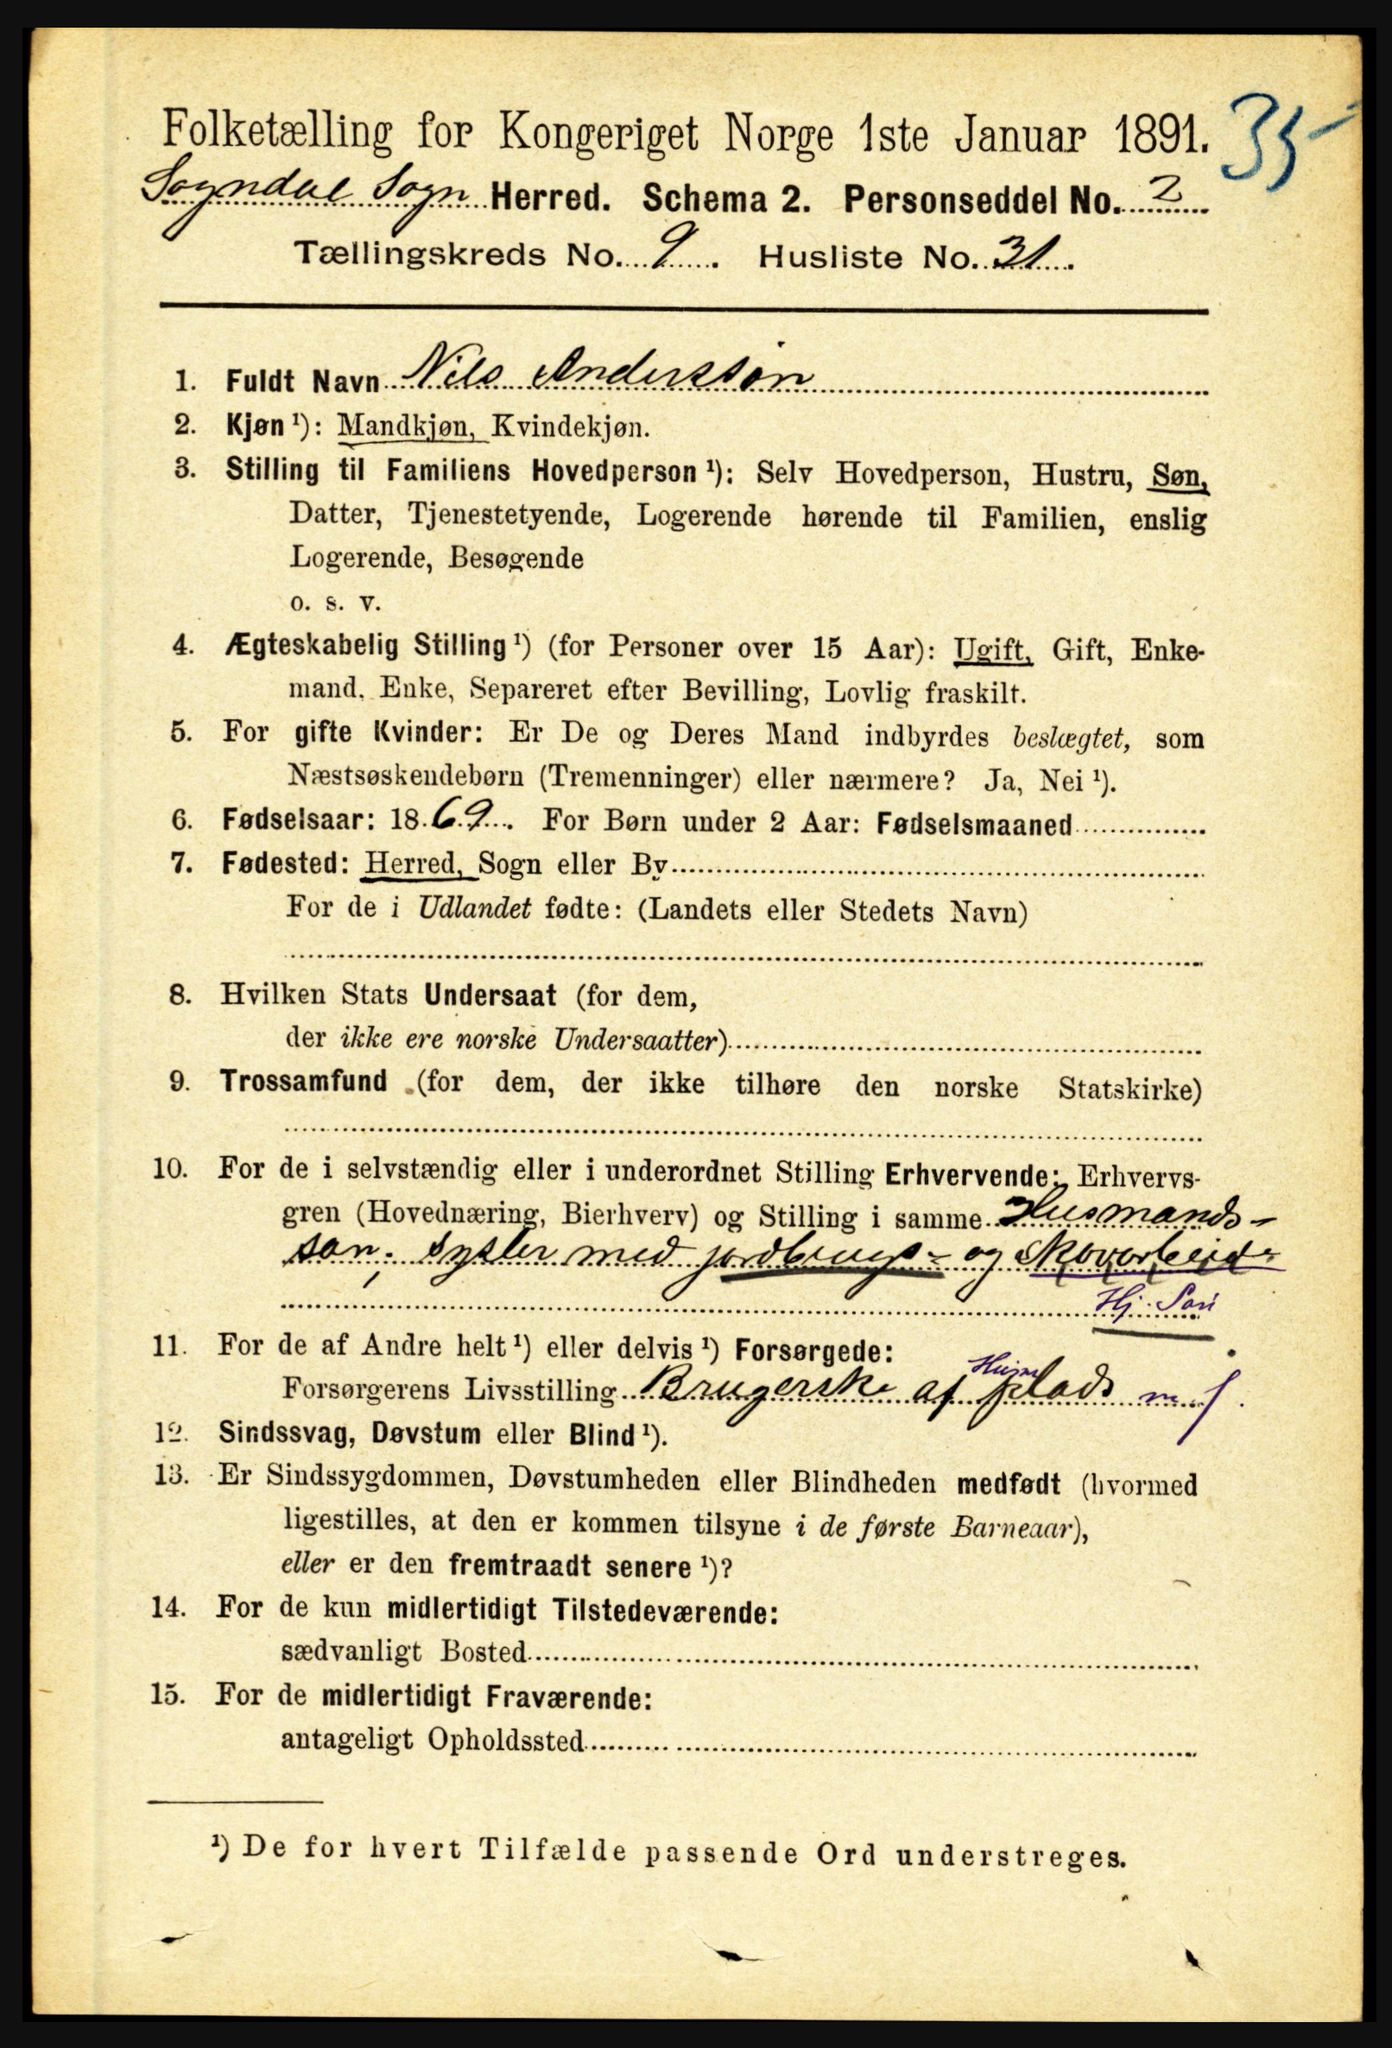 Folketælling for Kongeriget Norge 1ste Januar 1891. 35
Sogndal Sogn Herred. Schema 2. Personseddel No. 2
Tællingskreds No. 9. Husliste No. 31.
1. Fuldt Navn Nils Anderssøn
2. Kjøn ¹): Mandkjøn, Kvindekjøn.
3. Stilling til Familiens Hovedperson ¹): Selv Hovedperson, Hustru, Søn,
Datter, Tjenestetyende, Logerende hørende til Familien, enslig
Logerende, Besøgende
o. s. v.
4. Ægteskabelig Stilling ¹) (for Personer over 15 Aar): Ugift, Gift, Enke-
mand, Enke, Separeret efter Bevilling, Lovlig fraskilt.
5. For gifte Kvinder: Er De og Deres Mand indbyrdes beslægtet, som
Næstsøskendebørn (Tremenninger) eller nærmere? Ja, Nei ¹).
6. Fødselsaar: 1869. For Børn under 2 Aar: Fødselsmaaned
7. Fødested: Herred, Sogn eller By
For de i Udlandet fødte: (Landets eller Stedets Navn)
8. Hvilken Stats Undersaat (for dem,
der ikke ere norske Undersaatter)
9. Trossamfund (for dem, der ikke tilhøre den norske Statskirke)
10. For de i selvstændig eller i underordnet Stilling Erhvervende: Erhvervs-
gren (Hovednæring, Bierhverv) og Stilling i samme Husmands-
søn, sysler med jordbrugs- og Skovarbeid
Hj. Søn
11. For de af Andre helt ¹) eller delvis ¹) Forsørgede:
Forsørgerens Livsstilling Brugerske af Husm plads m. j.
12. Sindssvag, Døvstum eller Blind ¹).
13. Er Sindssygdommen, Døvstumheden eller Blindheden medfødt (hvormed
ligestilles, at den er kommen tilsyne i de første Barneaar),
eller er den fremtraadt senere ¹)?
14. For de kun midlertidigt Tilstedeværende:
sædvanligt Bosted
15. For de midlertidigt Fraværende:
antageligt Opholdssted
¹) De for hvert Tilfælde passende Ord understreges.